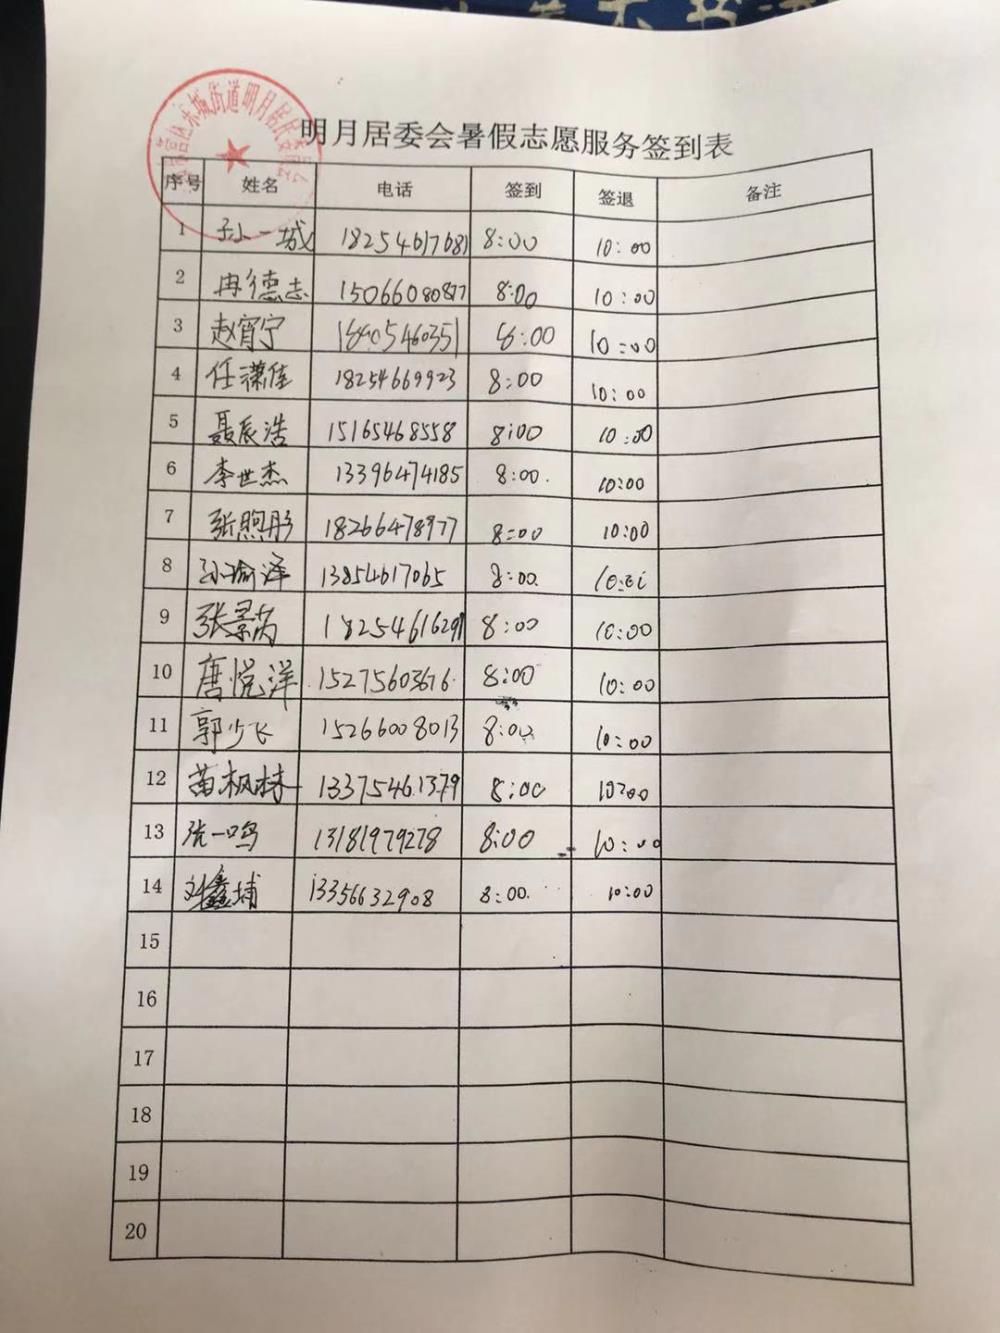 明月居委会暑假志愿服务签到表
序号 姓名 电话 签到 签退 备注
1 孙一城 18254617681 8:00 10:00
2 冉德志 15066080877 8:00 10:00
3 赵宵宁 8:00 10:00
4 任潇佳 18254669923 8:00 10:00
5 聂辰浩 15165468558 8:00 10:00
6 李世杰 13396474185 8:00. 10:00
7 张煦彤 18266478977 8:00 10:00
8 孙瑜泽 13854617065 8:00.
9 张景芮 18254616291 8:00 10:00
10 唐悦洋 15275603676. 8:00 10:00
11 郭少飞 15266008013 8:00 10:00
12 苗枫林 13375461379 8:00 10:00
13 张一鸣 13181979278 8:00 10:00
14 刘鑫埔 13356632908 8:00. 10:00
15
16
17
18
19
20